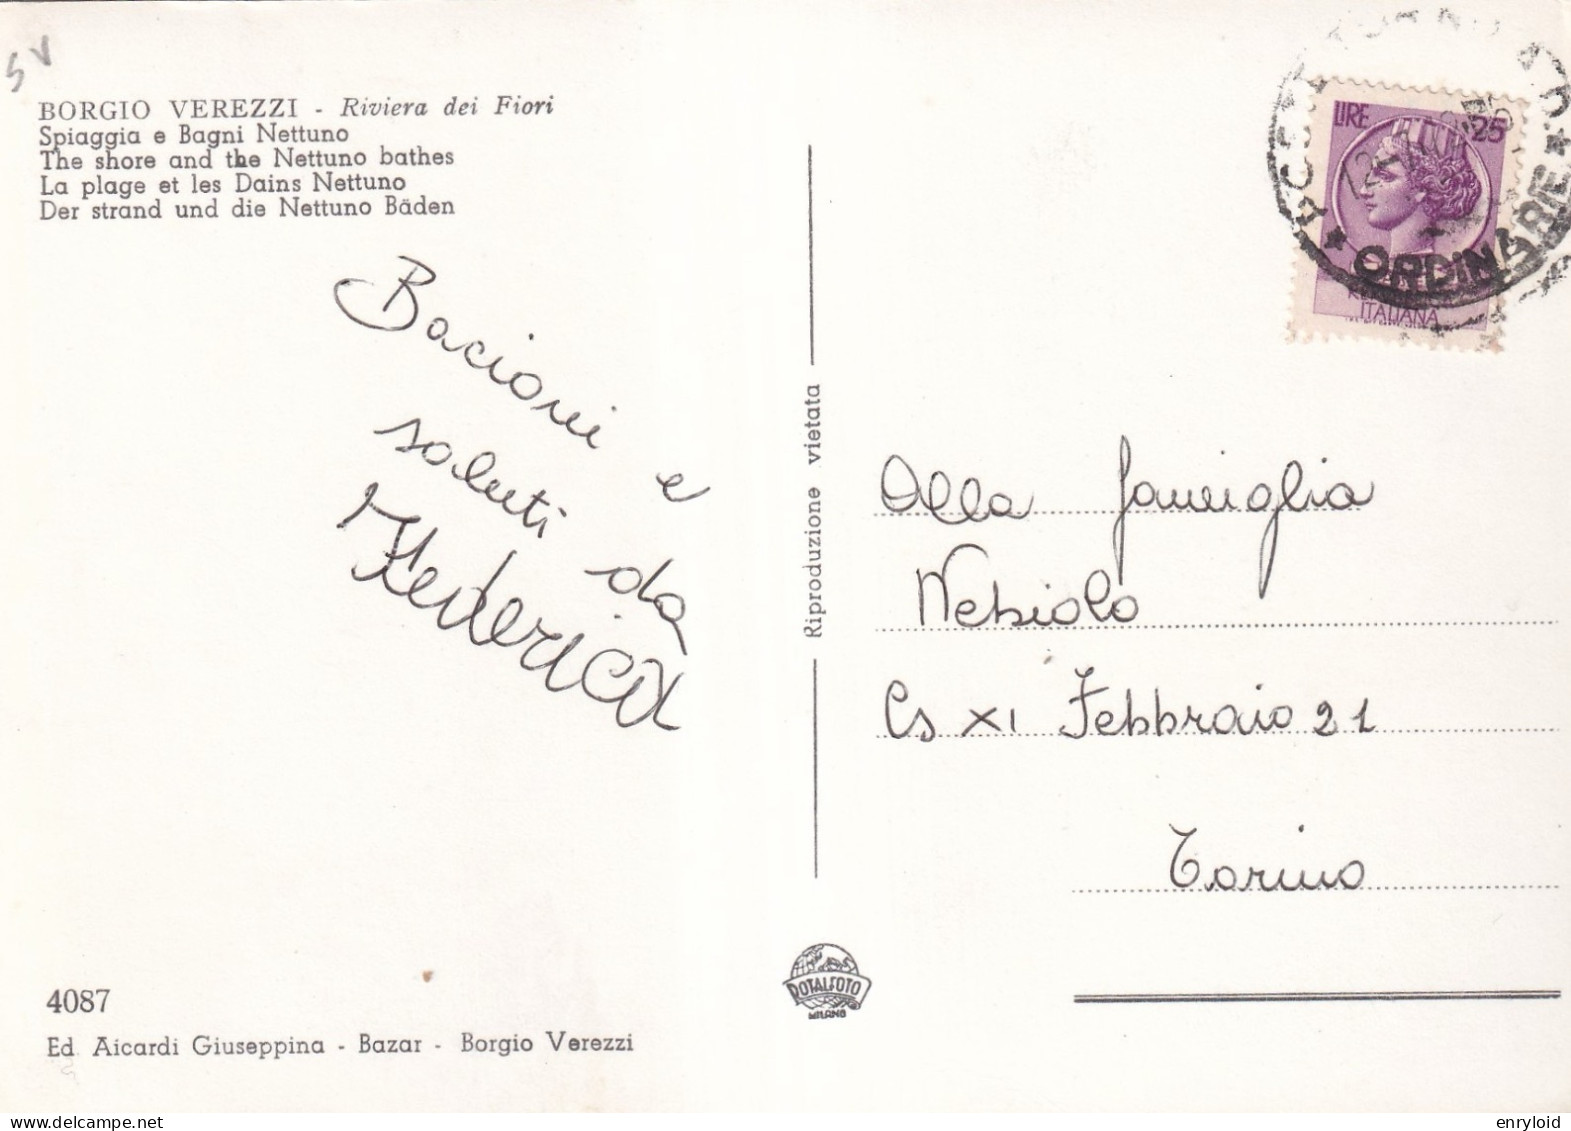 SV
BORGIO VEREZZI - Riviera dei Fiori
Spiaggia e Bagni Nettuno
The shore and the Nettuno bathes
La plage et les Dains Nettuno
Der strand und die Nettuno Bäden
Bacioni e
saluti da
Federica
4087
Ed Aicardi Giuseppina - Bazar - Borgio Verezzi
Riproduzione vietata
ROTALFOTO
MILANO
LIRE 25
ITALIANA
ORDINARIE
Alla famiglia
Nebiolo
Cs XI Febbraio 21
Torino
delcampe.net
enryloid